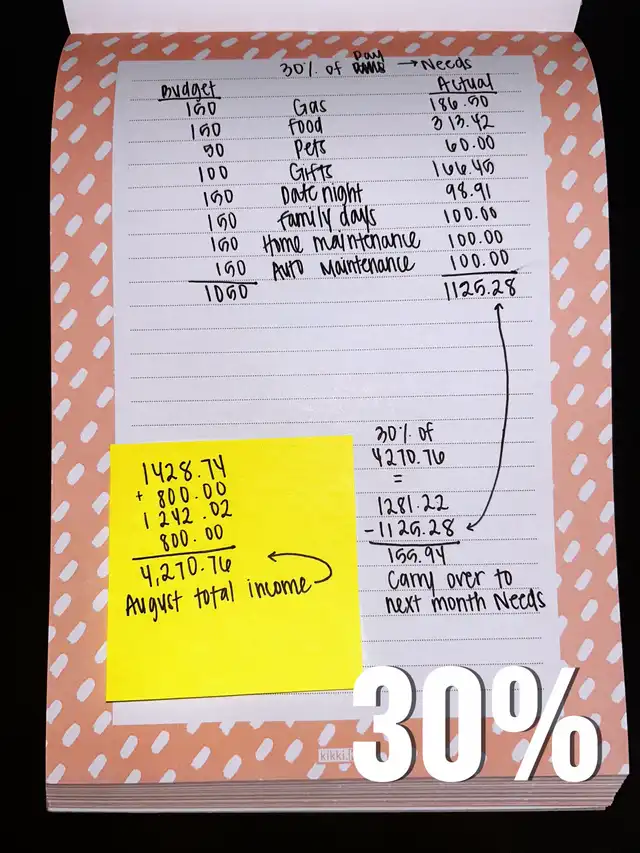 30% of Pay → Needs
Budget Actual
150 Gas 186.50
150 Food 313.42
50 Pets 60.00
100 Gifts 166.45
150 Date night 98.91
150 Family days 100.00
150 Home maintenance 100.00
150 Auto Maintenance 100.00
1050 1125.28
1428.74
+ 800.00
1242.02
800.00
4,270.76
August total income
30% of
4270.76
=
1281.22
-1125.28
155.94
Carry over to
next month Needs
30%
kikki.